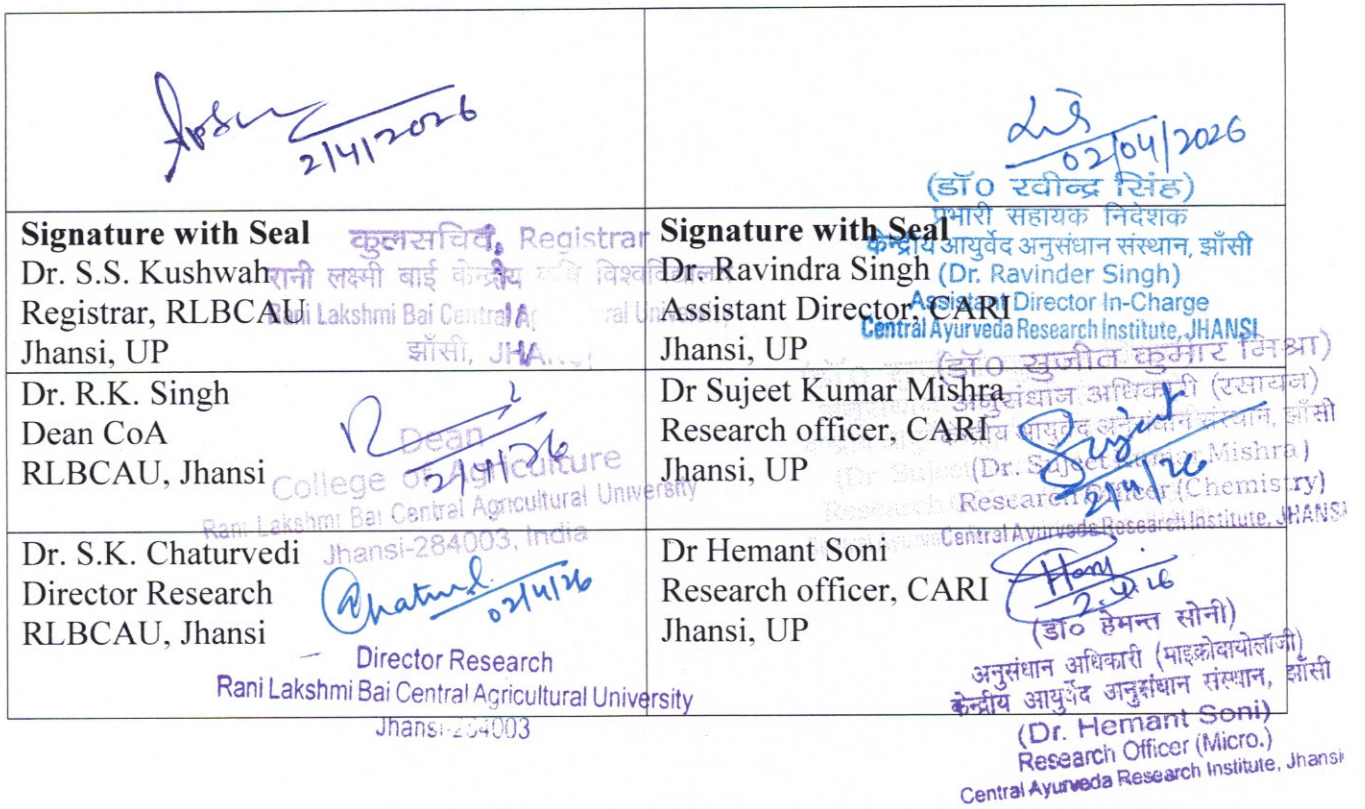 2/4/2026
02/04/2026
(डॉ० रवीन्द्र सिंह)
प्रभारी सहायक निदेशक
केन्द्रीय आयुर्वेद अनुसंधान संस्थान, झाँसी
(Dr. Ravinder Singh)
Assistant Director In-Charge
Central Ayurveda Research Institute, JHANSI
Signature with Seal
Dr. S.S. Kushwah
Registrar, RLBCAU
Jhansi, UP
कुलसचिव, Registrar
रानी लक्ष्मी बाई केन्द्रीय विश्वविद्यालय
Rani Lakshmi Bai Central University
झाँसी,
Signature with Seal
Dr. Ravindra Singh
Assistant Director, CARI
Jhansi, UP
Dr. R.K. Singh
Dean CoA
RLBCAU, Jhansi
2/4/26
Dean
College of Agriculture
Rani Lakshmi Bai Central Agricultural University
Jhansi-284003, India
Dr Sujeet Kumar Mishra
Research officer, CARI
Jhansi, UP
(डॉ० सुजीत कुमार मिश्रा)
अनुसंधान अधिकारी (रसायन)
केन्द्रीय आयुर्वेद अनुसंधान संस्थान, झाँसी
Sujeet
2/4/26
(Dr. Sujeet Kumar Mishra)
Research Officer (Chemistry)
Central Ayurveda Research Institute, JHANSI
Dr. S.K. Chaturvedi
Director Research
RLBCAU, Jhansi
02/4/26
Director Research
Rani Lakshmi Bai Central Agricultural University
Jhansi-284003
Dr Hemant Soni
Research officer, CARI
Jhansi, UP
(डॉ० हेमन्त सोनी)
अनुसंधान अधिकारी (माइक्रोबायोलॉजी)
केन्द्रीय आयुर्वेद अनुसंधान संस्थान, झाँसी
(Dr. Hemant Soni)
Research Officer (Micro.)
Central Ayurveda Research Institute, Jhansi